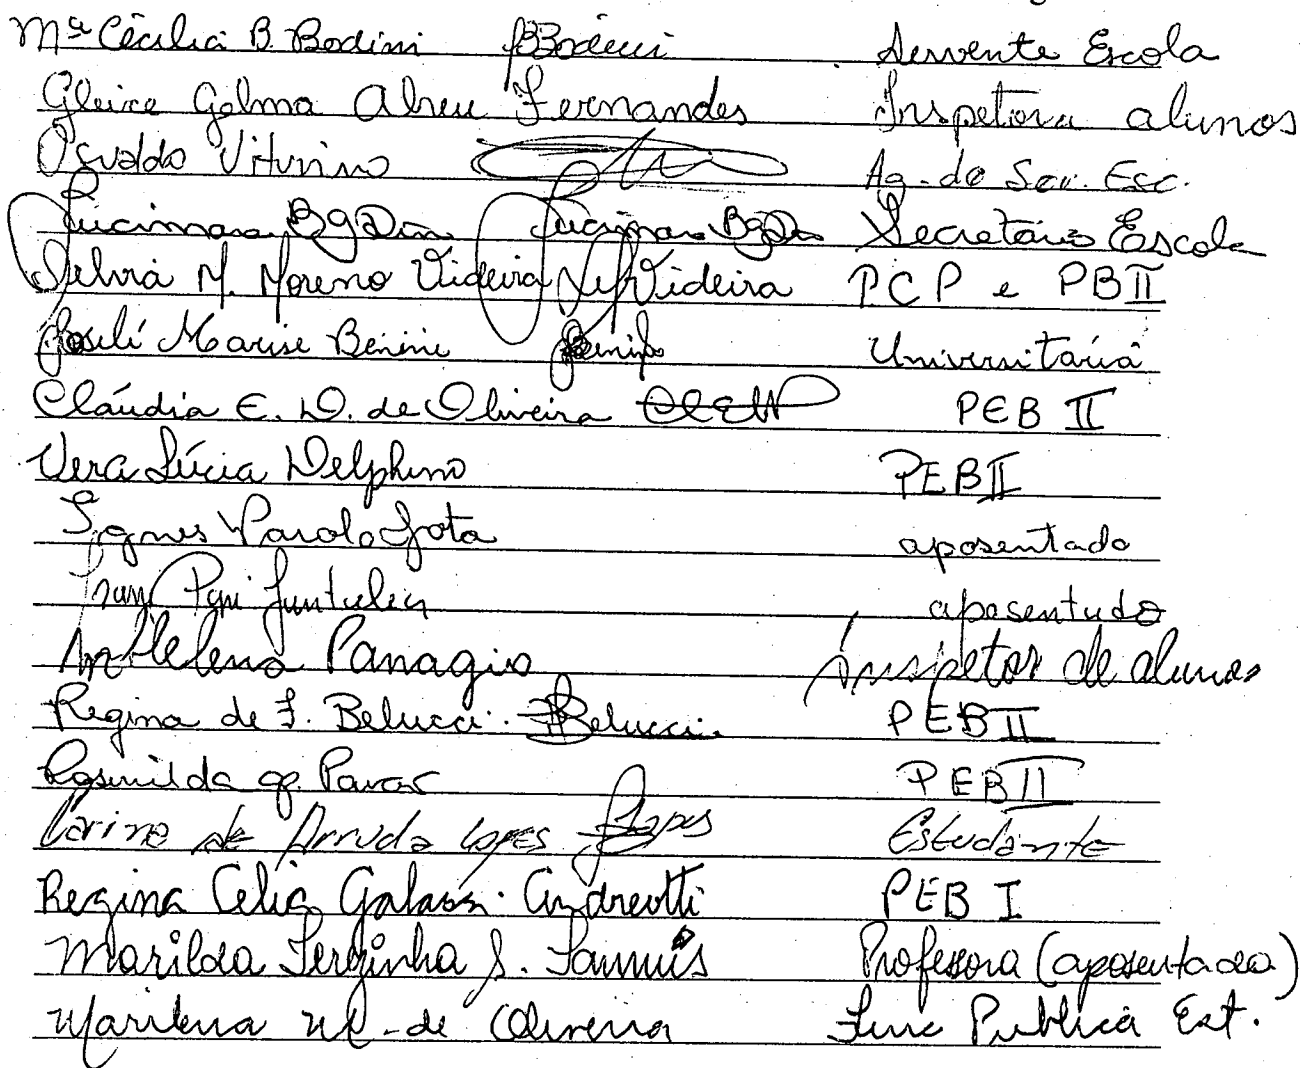 Mª Cecília B. Bodini BBodini Servente Escola
Gleice Gelma Abreu Fernandes Inspetora alunos
Osvaldo Viturino Ag. de Ser. Esc.
Lucimara Lucimara Secretário Escola
Silvia M. Moreno Videira Videira PCP e PBII
Roseli Marise Benini Universitária
Cláudia E. D. de Oliveira PEB II
Vera Lúcia Delphino PEB II
Ignes aposentado
aposentudo
Mª Helena Panagio inspetor de alunos
Regina de F. Belucci Belucci PEB II
Rosenilda ap. PEB II
Carina de Arruda Lopes Lopes Estudante
Regina Celia Galassi Andreotti PEB I
Marilda Terezinha S. Professora (aposentada)
de Oliveira Func Publica Est.